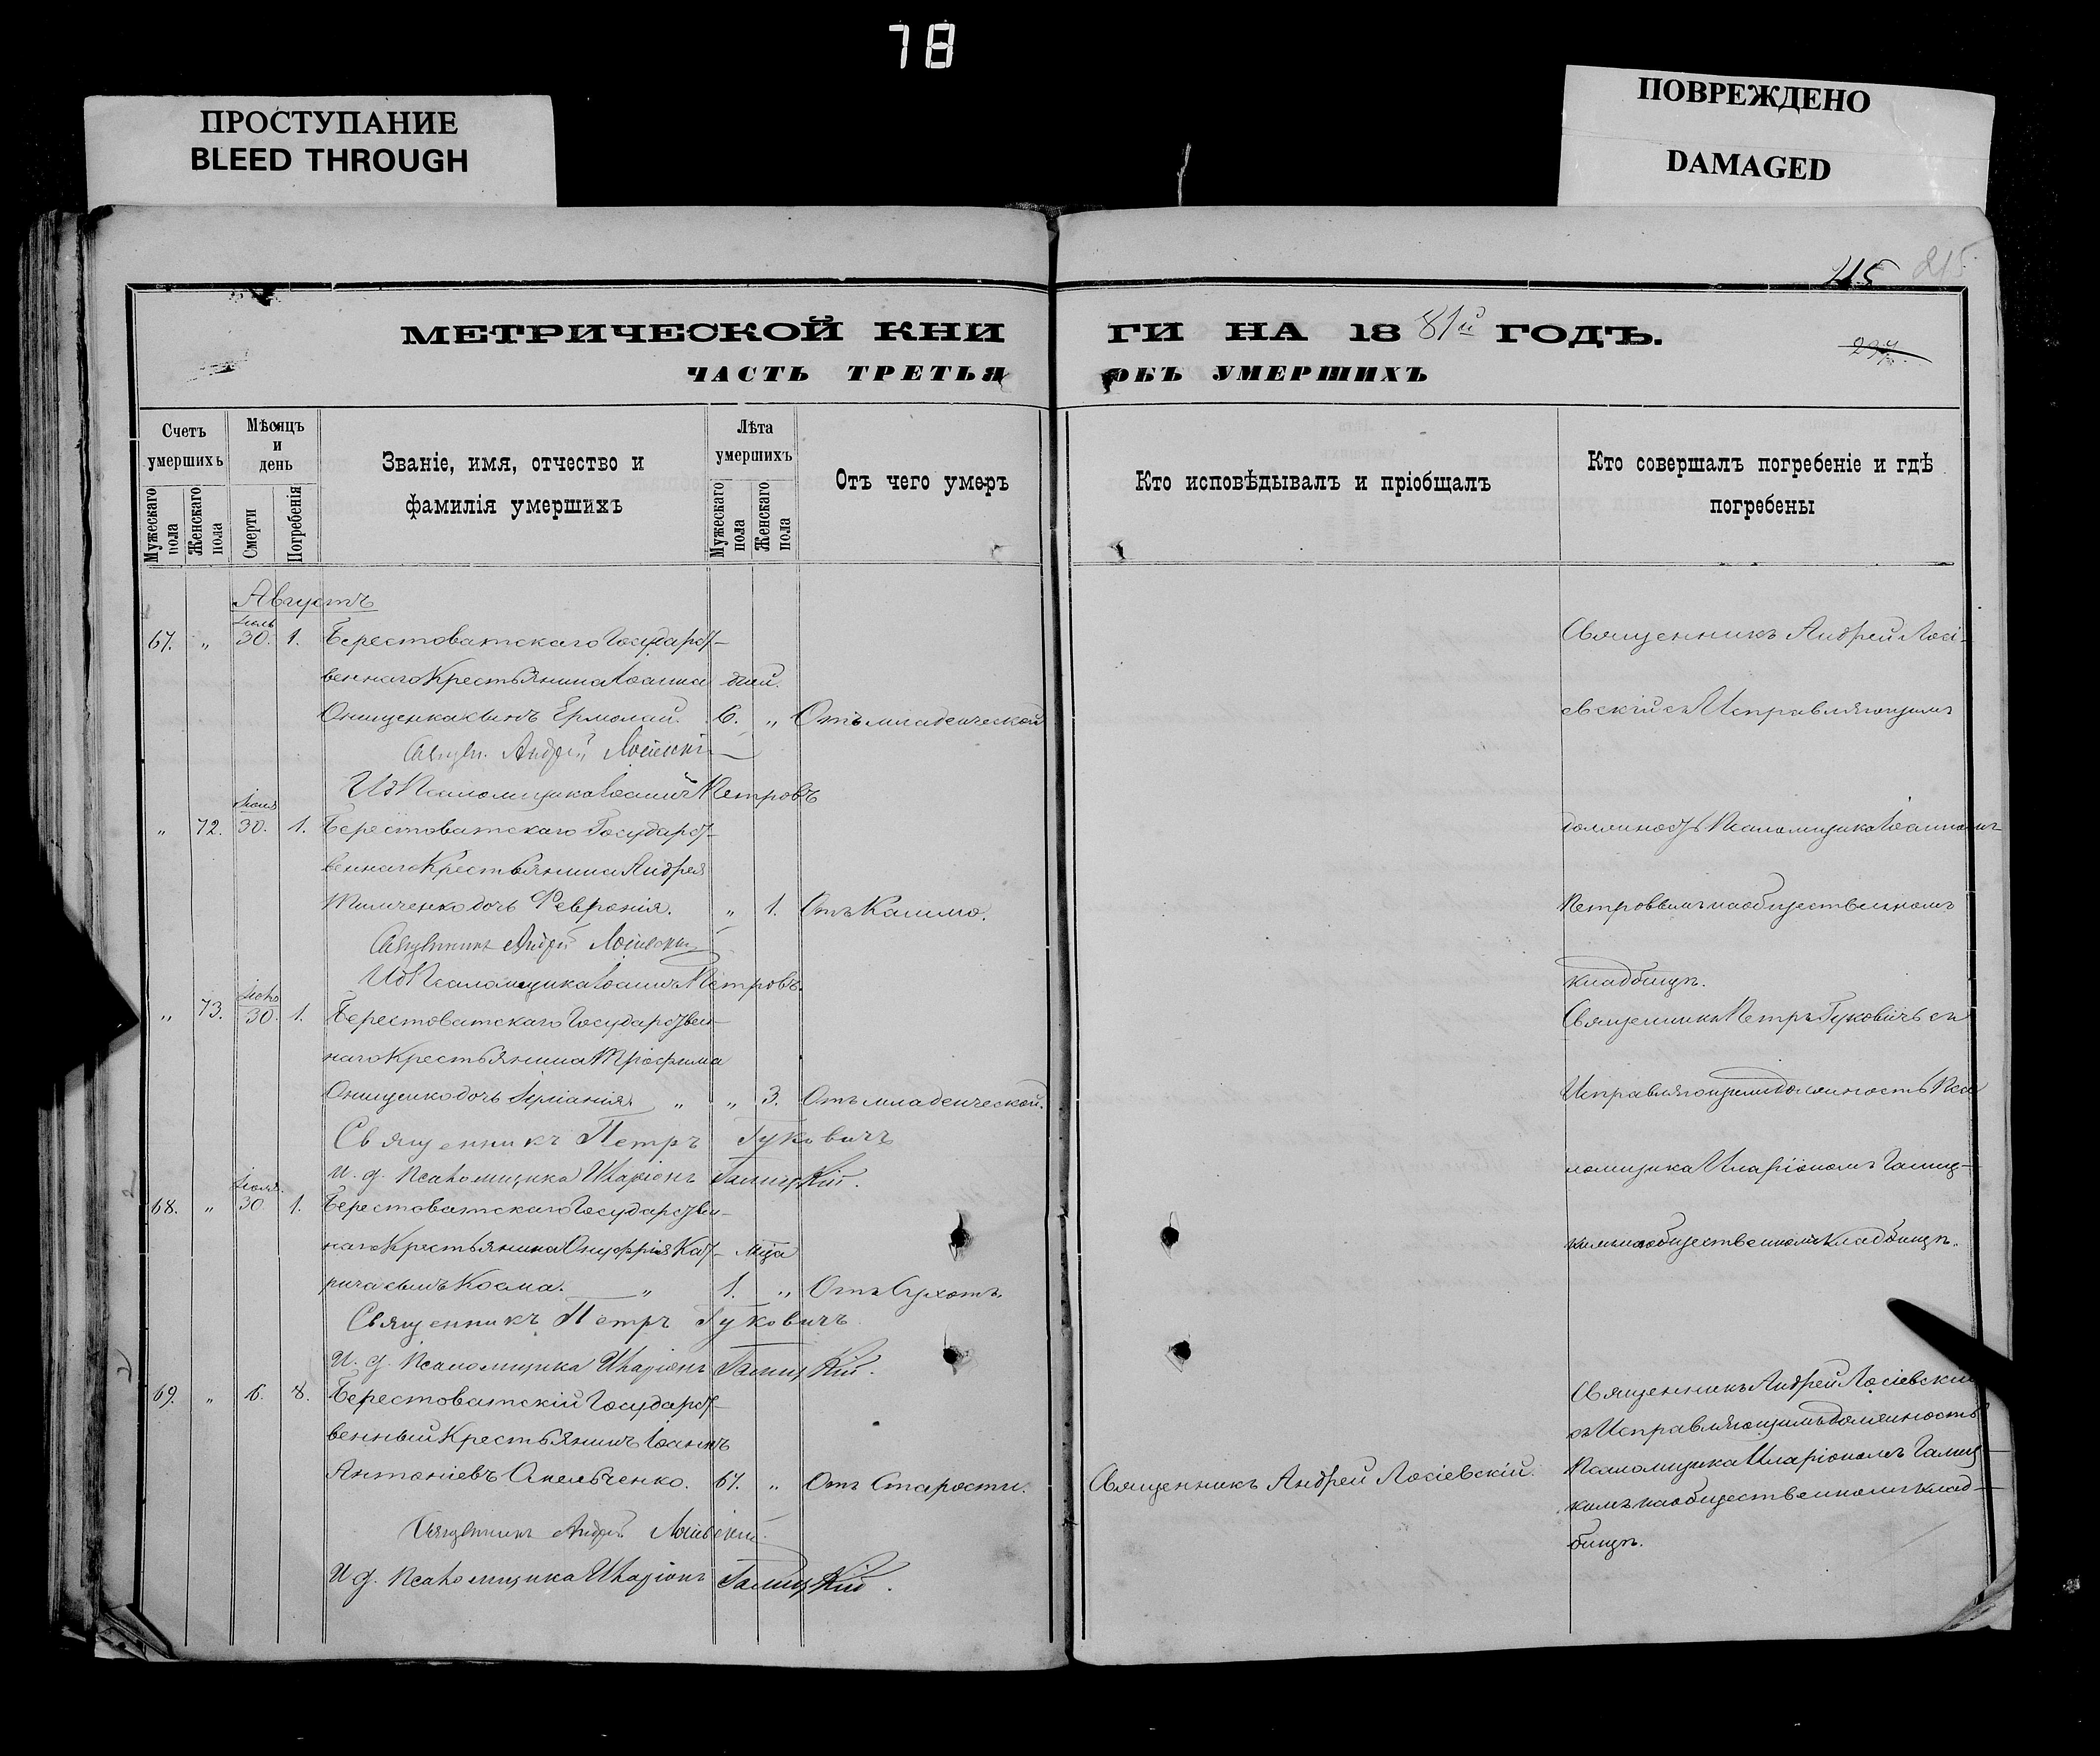 78
ПРОСТУПАНИЕ
BLEED THROUGH
ПОВРЕЖДЕНО
DAMAGED
215
215
МЕТРИЧЕСКОЙ КНИ
ГИ НА 1881й ГОДЪ.
ЧАСТЬ ТРЕТЬЯ
ОБЪ УМЕРШИХЪ
Счетъ умершихъ
Мужескаго пола
Женскаго пола
Мѣсяцъ и день
Смерти
Погребенія
Званіе, имя, отчество и
фамилія умершихъ
Лѣта умершихъ
Мужескаго пола
Женскаго пола
Отъ чего умеръ
Кто исповѣдывалъ и пріобщалъ
Кто совершалъ погребеніе и гдѣ
погребены
Августъ
67. " 30. 1. Берестоватскаго Государст-
веннаго Крестьянина Іоанна дней.
Онищенка сынъ Ермолай. 6. " Отъ младенческой
Андрей
ИД Псаломщика Іоаннъ Петровъ
" 72. 30. 1. Берестоватскаго Государст-
веннаго Крестьянина Андрея
дочь Февронія. " 1. Отъ Кашлю.
Священникъ Андрей Лосіевскій
ИД Псаломщика Іоаннъ Петровъ.
" 73. 30. 1. Берестоватскаго Государствен-
наго Крестьянина Трофима
Онищенко дочь " " 3. Отъ младенческой.
Священникъ Петръ Гуковичъ
И. д. Псаломщика Иларіонъ Галицкій.
Іюля.
68. " 30 1. Берестоватскаго Государствен-
наго Крестьянина Онуфрія Кат- мца
рича сынъ Косма. " 1. " Отъ Сухотъ.
Священникъ Петръ Гуковичъ
И. д. Псаломщика Иларіонъ Галицкій.
69. " 6. 8. Берестоватскій Государст-
венный Крестьянинъ Іоаннъ
Антоніевъ Омельченко. 67. " Отъ Старости.
Священникъ Андрей Лосіевскій.
И д. Псаломщика Иларіонъ Галицкій.
Священникъ Андрей Лосіевскій.
Священникъ Андрей Лосі-
евскій съ Исправляющимъ
должность Псаломщика Іоанномъ
Петровымъ на общественномъ
кладбищѣ.
Священникъ Петръ Гуковичъ съ
Исправляющимъ должность Пса
ломщика Иларіономъ Галиц-
кимъ на общественномъ Кладбищѣ.
Священникъ Андрей Лосіевскій
съ Исправляющимъ должность
Псаломщика Иларіономъ Галиц-
кимъ на общественномъ клад-
бищѣ.